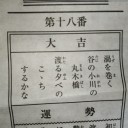 第十八番
大吉
渦を巻く
谷の小川の
丸木橋
渡る夕べの
こゝち
するかな
運勢